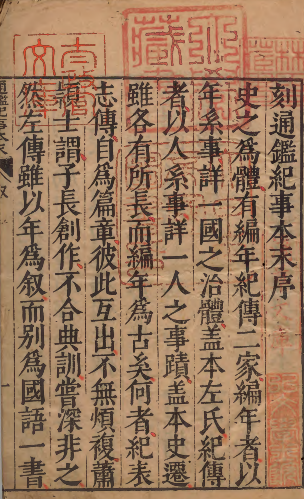 刻通鑑紀事本末序
史之爲體有編年紀傳二家編年者以
年系事詳一國之治體盖本左氏紀傳
者以人系事詳一人之事蹟盖本史遷
雖各有所長而編年爲古矣何者紀表
志傳自爲篇章彼此互出不無煩複蕭
頴士謂子長創作不合典訓嘗深非之
然左傳雖以年爲叙而别爲國語一書